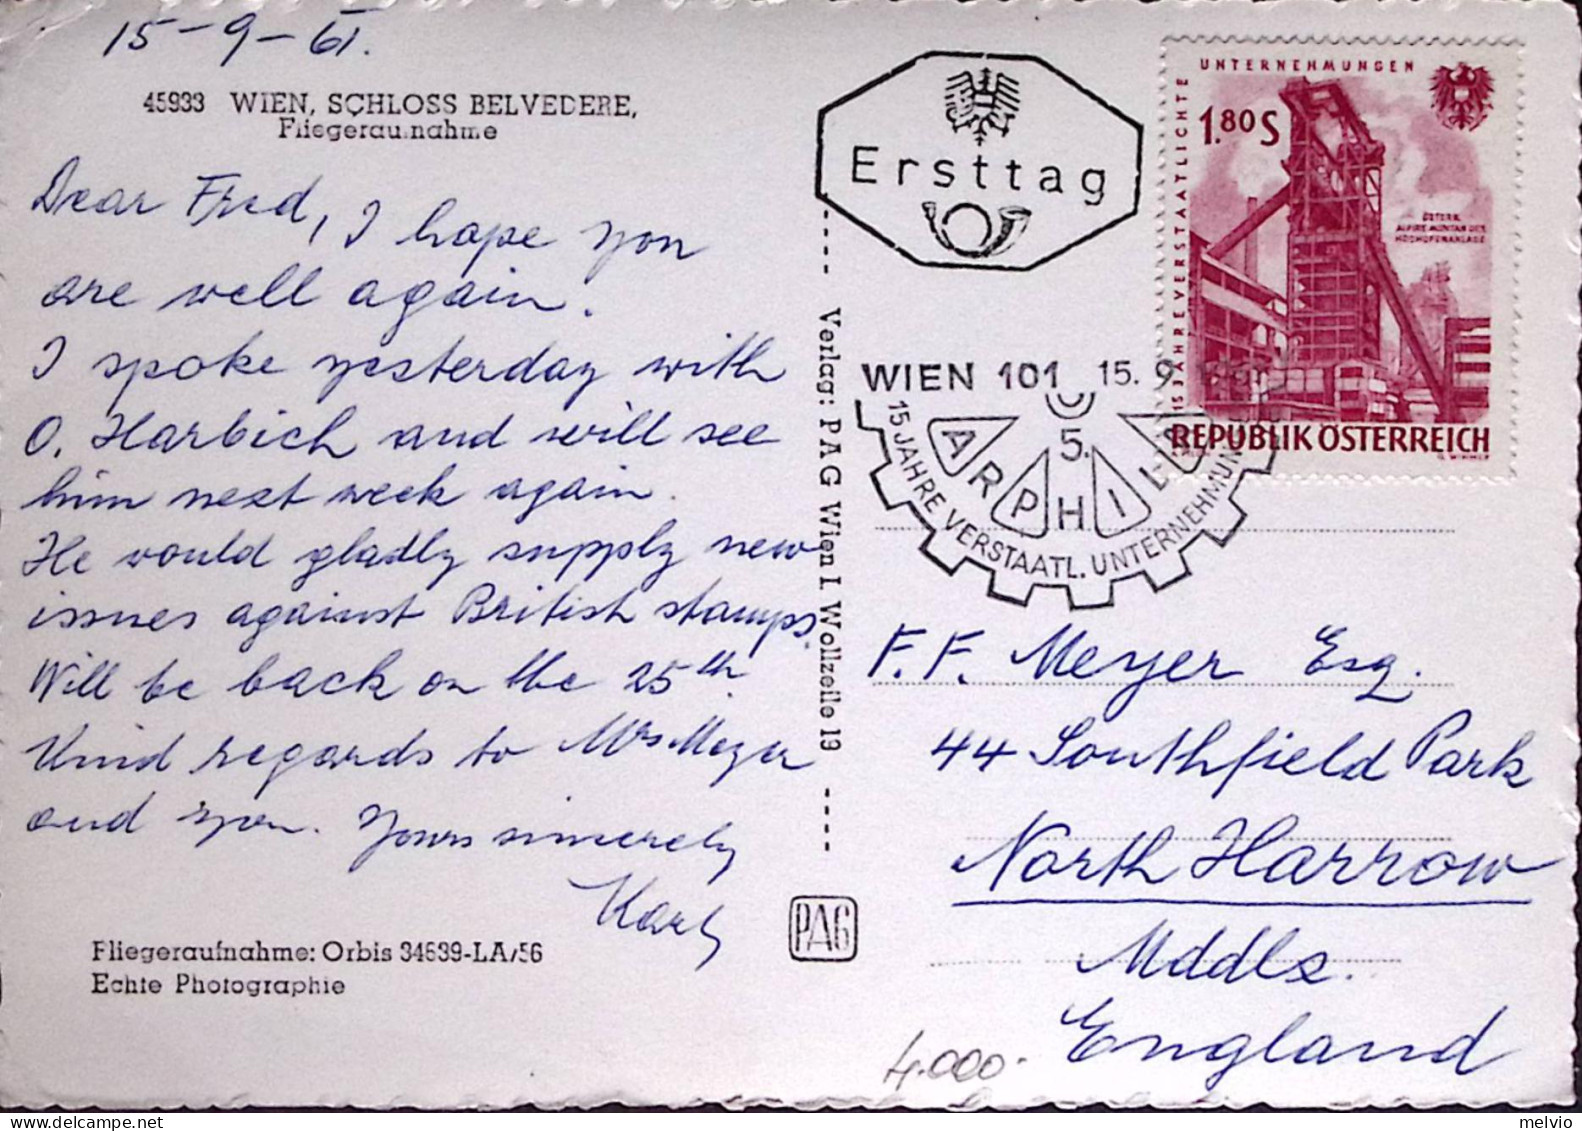 15-9-61.
45933 WIEN, SCHLOSS BELVEDERE,
Fliegeraufnahme
Dear Fred, I hope you
are well again.
I spoke yesterday with
O. Harbich and will see
him next week again.
He would gladly supply new
issues against British stamps.
Will be back on the 25th.
Kind regards to Mrs Meyer
and you. Yours sincerely
Karl
Fliegeraufnahme: Orbis 34639-LA/56
Echte Photographie
Verlag: PAG Wien I. Wollzeile 19
PAG
Ersttag
WIEN 101 15.9.
5.
ARPHILA
15 JAHRE VERSTAATL. UNTERNEHMUN
15 JAHRE VERSTAATLICHTE
UNTERNEHMUNGEN
1.80 S
ÖSTERR.
ALPINE MONTAN GES.
HOCHOFENANLAGE
REPUBLIK ÖSTERREICH
F. F. Meyer Esq.
44 Southfield Park
North Harrow
Mddls.
England
4.000.-
delcampe.net
melvio